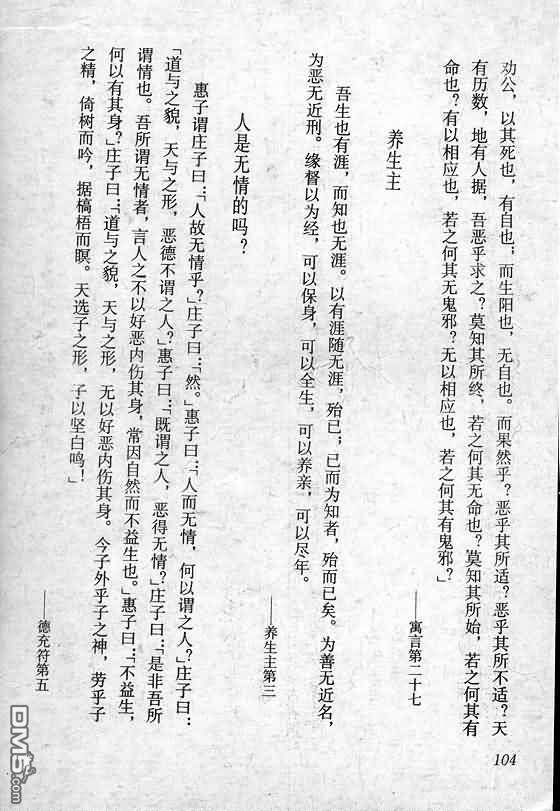 劝公，以其死也，有自也；而生阳也，无自也。而果然乎？恶乎其所适？恶乎其所不适？天
有历数，地有人据，吾恶乎求之？莫知其所终，若之何其无命也？莫知其所始，若之何其有
命也？有以相应也，若之何其无鬼邪？无以相应也，若之何其有鬼邪？」
——寓言第二十七
养生主
吾生也有涯，而知也无涯。以有涯随无涯，殆已；已而为知者，殆而已矣。为善无近名，
为恶无近刑。缘督以为经，可以保身，可以全生，可以养亲，可以尽年。
——养生主第三
人是无情的吗？
惠子谓庄子曰：「人故无情乎？」庄子曰：「然。」惠子曰：「人而无情，何以谓之人？」庄子曰：
「道与之貌，天与之形，恶德不谓之人？」惠子曰：「既谓之人，恶得无情？」庄子曰：「是非吾所
谓情也。吾所谓无情者，言人之不以好恶内伤其身，常因自然而不益生也。」惠子曰：「不益生，
何以有其身？」庄子曰：「道与之貌，天与之形，无以好恶内伤其身。今子外乎子之神，劳乎子
之精，倚树而吟，据槁梧而瞑。天选子之形，子以坚白鸣！」
——德充符第五
104
DM5.com